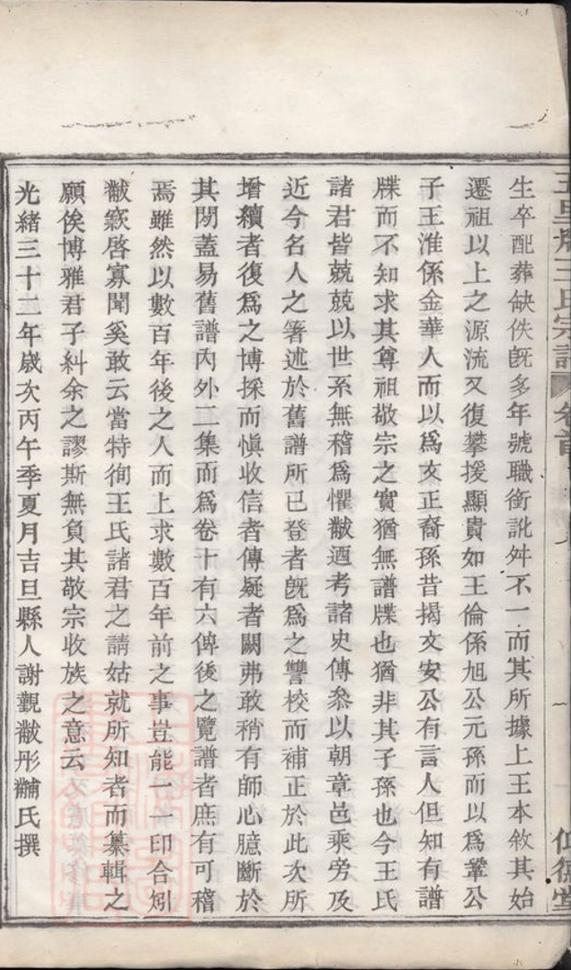 五里牌王氏宗譜 卷首
仰德堂
生卒配葬缺佚旣多年號職銜訛舛不一而其所據上王本敘其始
遷祖以上之源流又復攀援顯貴如王倫係旭公元孫而以爲鞏公
子王淮係金華人而以爲文正裔孫昔揭文安公有言人但知有譜
牒而不知求其尊祖敬宗之實猶無譜牒也猶非其子孫也今王氏
諸君皆兢兢以世系無稽爲懼黻迺考諸史傳叅以朝章邑乘旁及
近今名人之箸述於舊譜所已登者旣爲之讐校而補正於此次所
增續者復爲之博採而愼收信者傳疑者闕弗敢稍有師心臆斷於
其閒蓋易舊譜內外二集而爲卷十有六俾後之覽譜者庶有可稽
焉雖然以數百年後之人而上求數百年前之事豈能一一印合矧
黻窾啓寡聞奚敢云當特徇王氏諸君之請姑就所知者而纂輯之
願俟博雅君子糾余之謬斯無負其敬宗收族之意云
光緒三十二年歲次丙午季夏月吉旦縣人謝觀黻彤黼氏撰